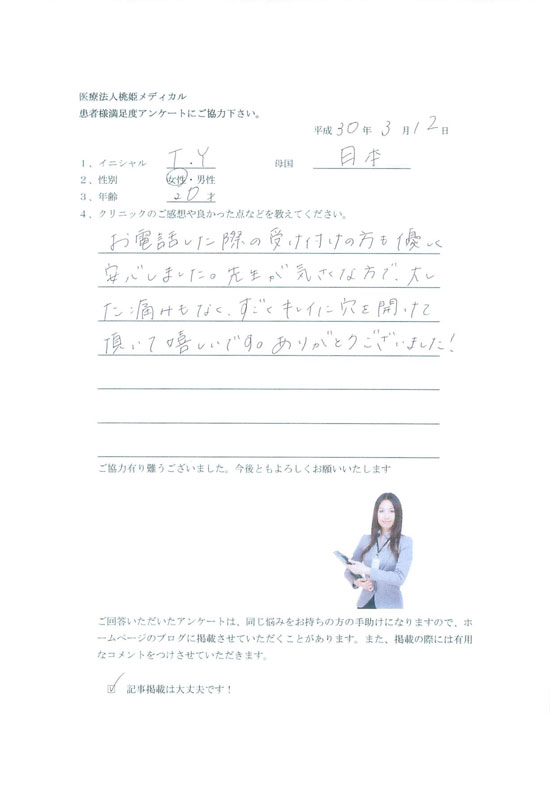 医療法人桃姫メディカル
患者様満足度アンケートにご協力下さい。
平成 30 年 3 月 12 日
1、イニシャル T.Y 母国 日本
2、性別 女性・男性
3、年齢 20 才
4、クリニックのご感想や良かった点などを教えてください。
お電話した際の受け付けの方も優しく
安心しました。先生が気さくな方で、大し
た痛みもなく、すごくキレイに穴を開けて
頂いて嬉しいです。ありがとうございました!
ご協力有り難うございました。今後ともよろしくお願いいたします
ご回答いただいたアンケートは、同じ悩みをお持ちの方の手助けになりますので、ホ
ームページのブログに掲載させていただくことがあります。また、掲載の際には有用
なコメントをつけさせていただきます。
☑ 記事掲載は大丈夫です!